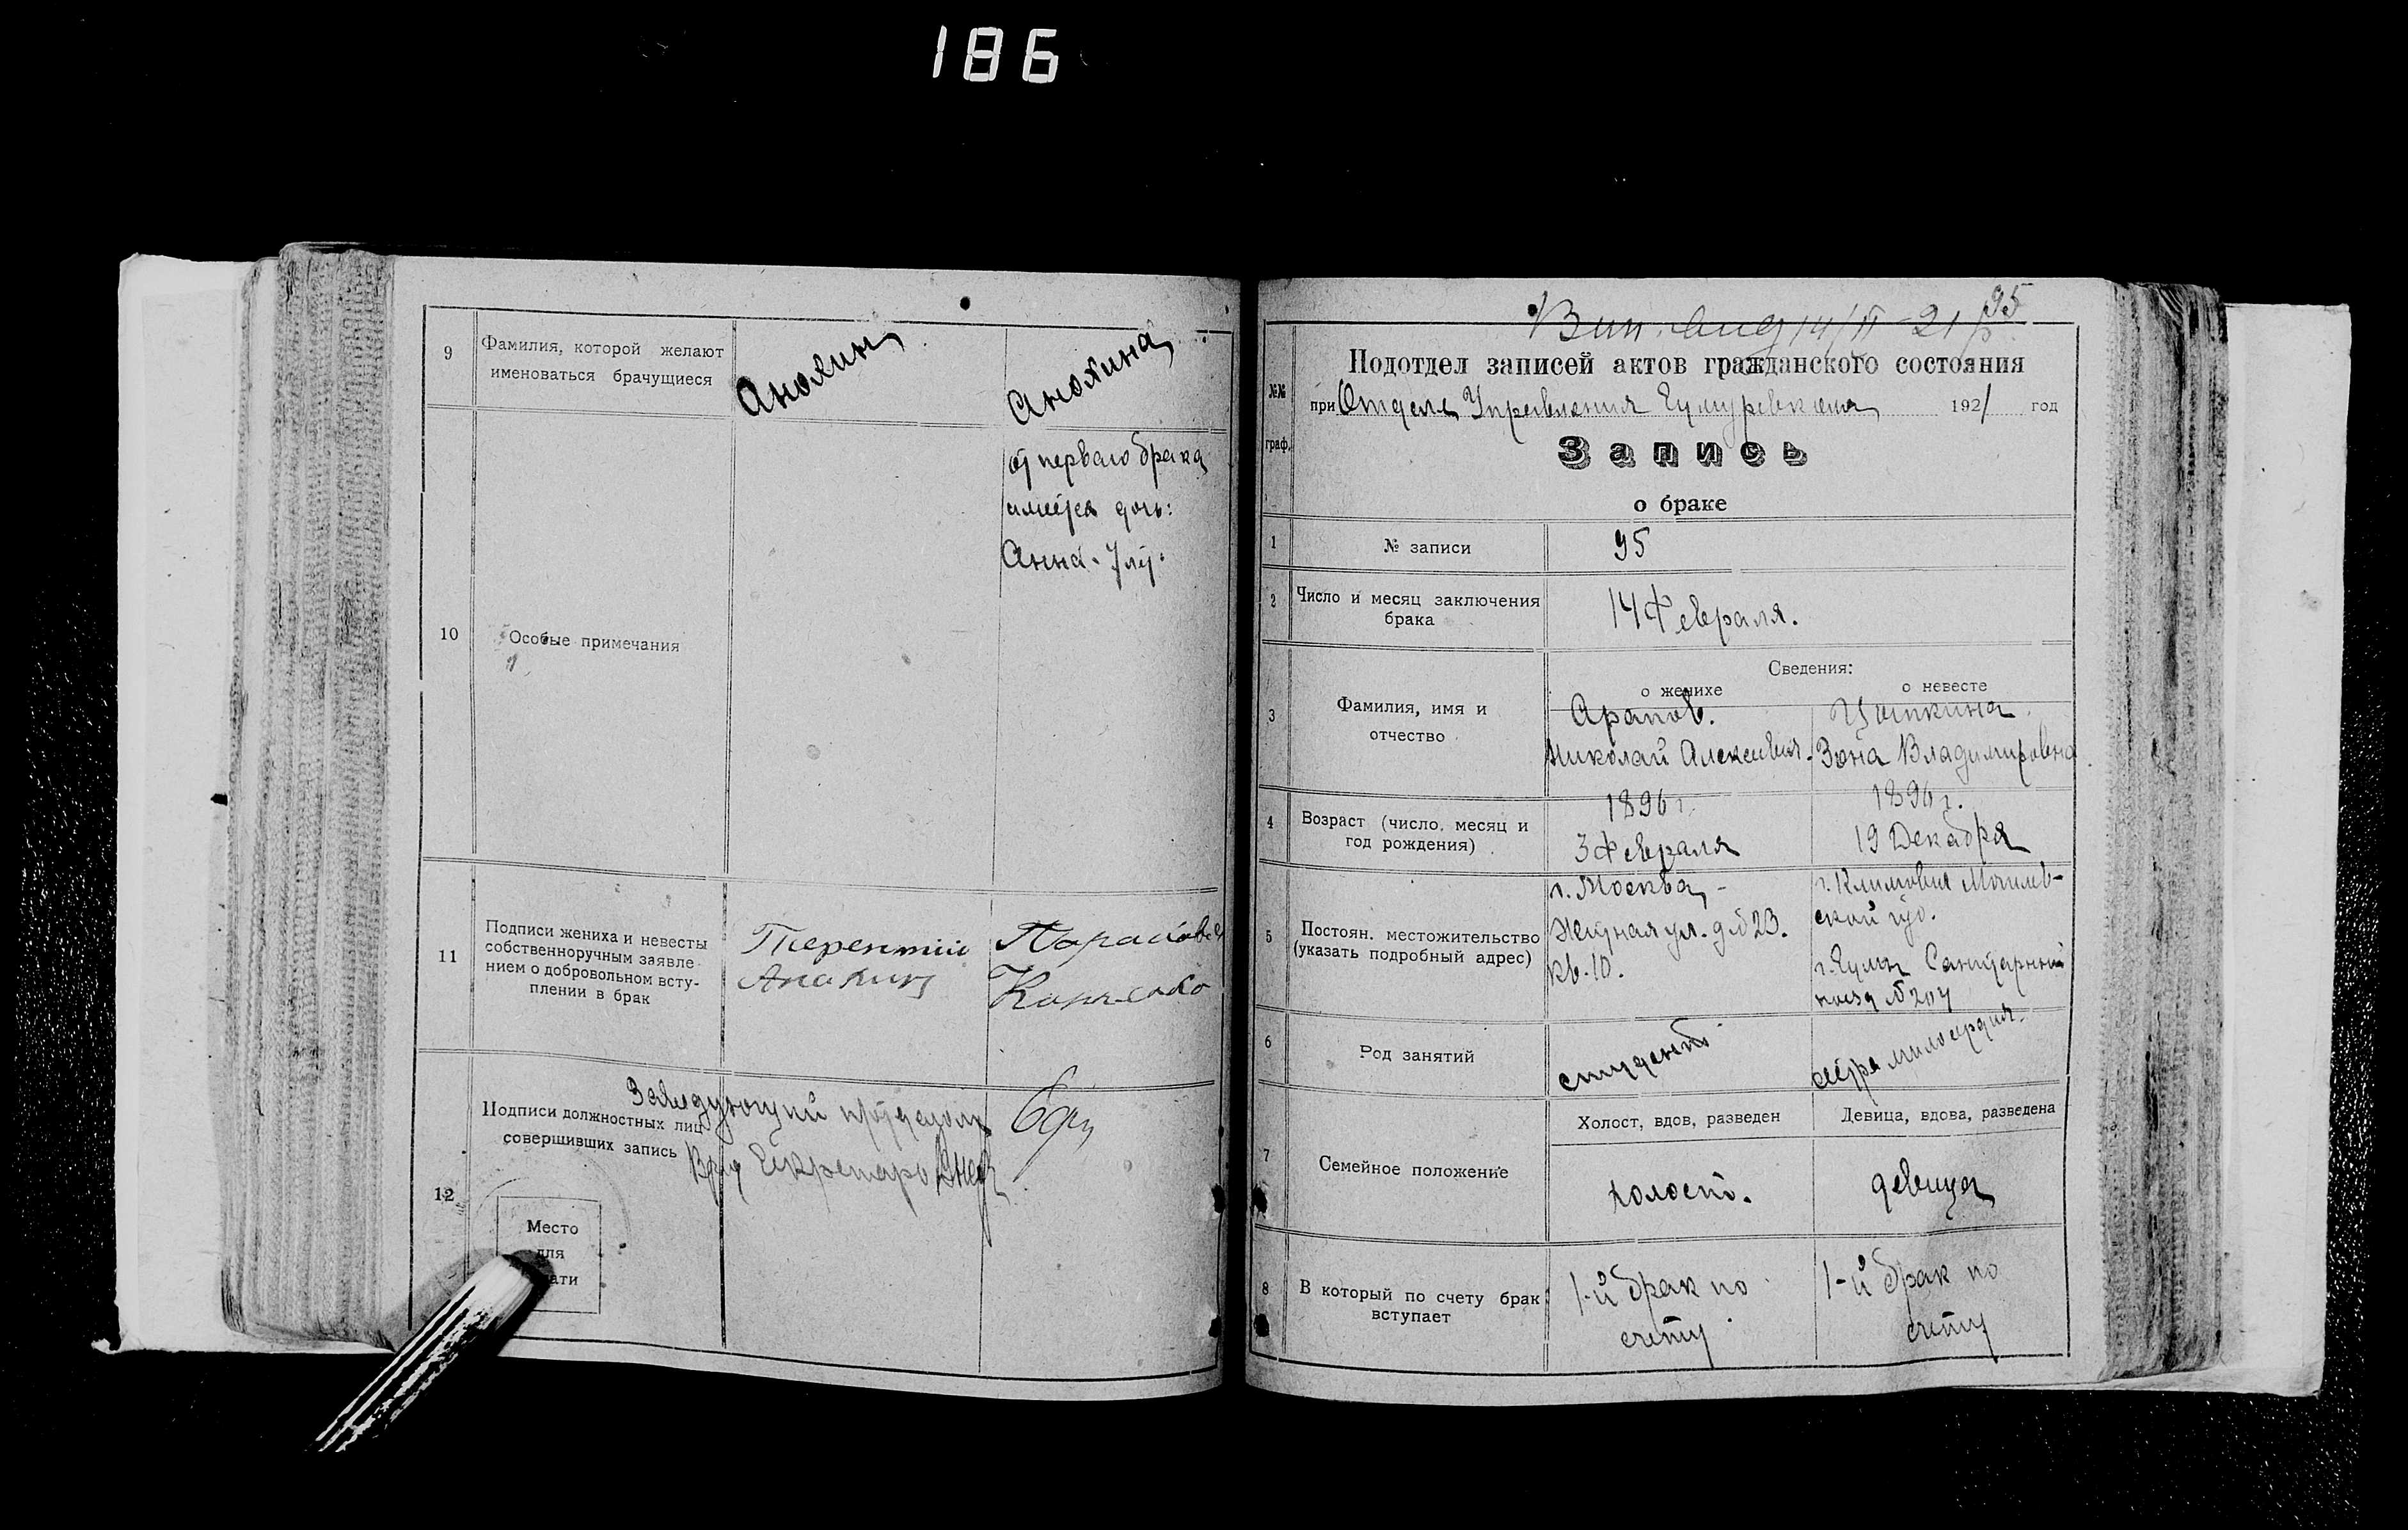 186
9
Фамилия, которой желают
именоваться брачущиеся
Анохин
Анохина
10
Особые примечания
от перваго брака
имеется дочь:
Анна - 7 лет.
11
Подписи жениха и невесты
собственноручным заявле-
нием о добровольном всту-
плении в брак
Терентий
Анохин
12
Подписи должностных лиц
совершивших запись
Заведующий
Врид Секретаря
Место
для
ати
95
14/II-21
№№
граф.
Подотдел записей актов гражданского состояния
при Отделе Управления 1921 год
Запись
о браке
1
№ записи
95
2
Число и месяц заключения
брака
14 Февраля.
Сведения:
о женихе
о невесте
3
Фамилия, имя и
отчество
Арапов.
Николай Алексеевич.
Цыпкина
Владимировна
4
Возраст (число, месяц и
год рождения)
1896 г.
3 Февраля
1896 г.
19 Декабря
5
Постоян. местожительство
(указать подробный адрес)
г. Москва,
ул. д № 23.
кв. 10.
г. Климовичи Могилев-
ской губ.
Санитарный
поезд № 204
6
Род занятий
студент
сестра милосердия.
7
Семейное положение
Холост, вдов, разведен
Девица, вдова, разведена
холост.
девица
8
В который по счету брак
вступает
1-й брак по
счету
1-й брак по
счету